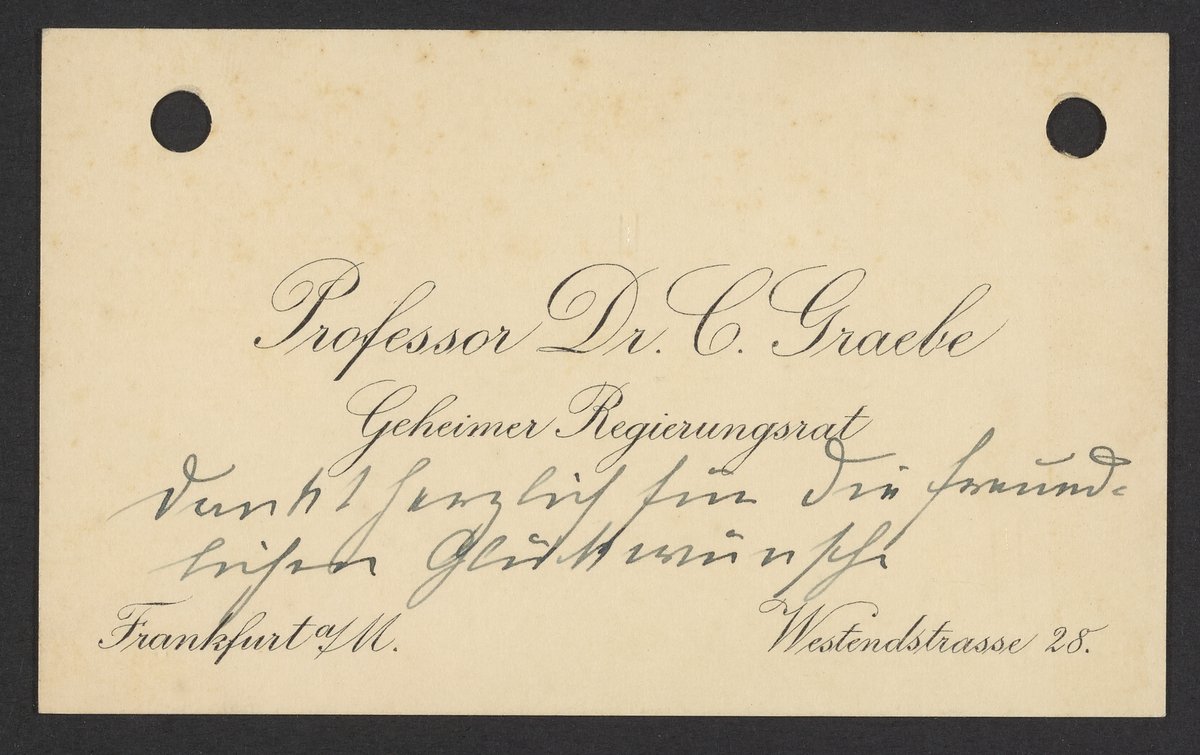 Professor Dr. C. Graebe
Geheimer Regierungsrat
dankt herzlich für die freund-
lichen Glückwünsche
Frankfurt a/M.
Westendstrasse 28.